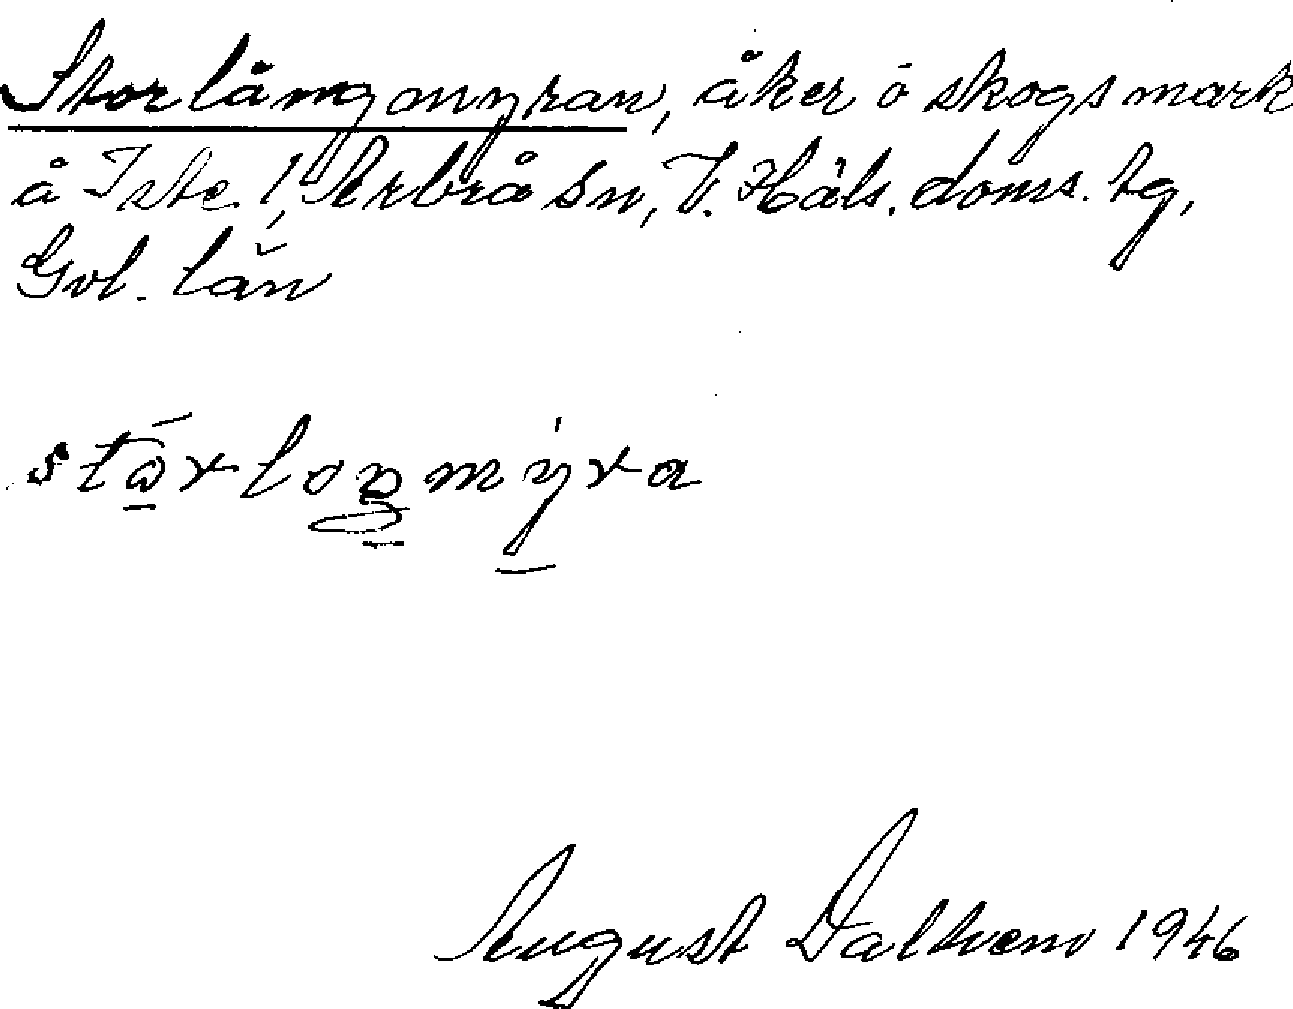 Storlångmyran, åker o skogsmark
å Iste 1, Arbrå sn, V. Häls. doms. tg,
Gvl. län
stårloŋmýra
August Dalhem 1946